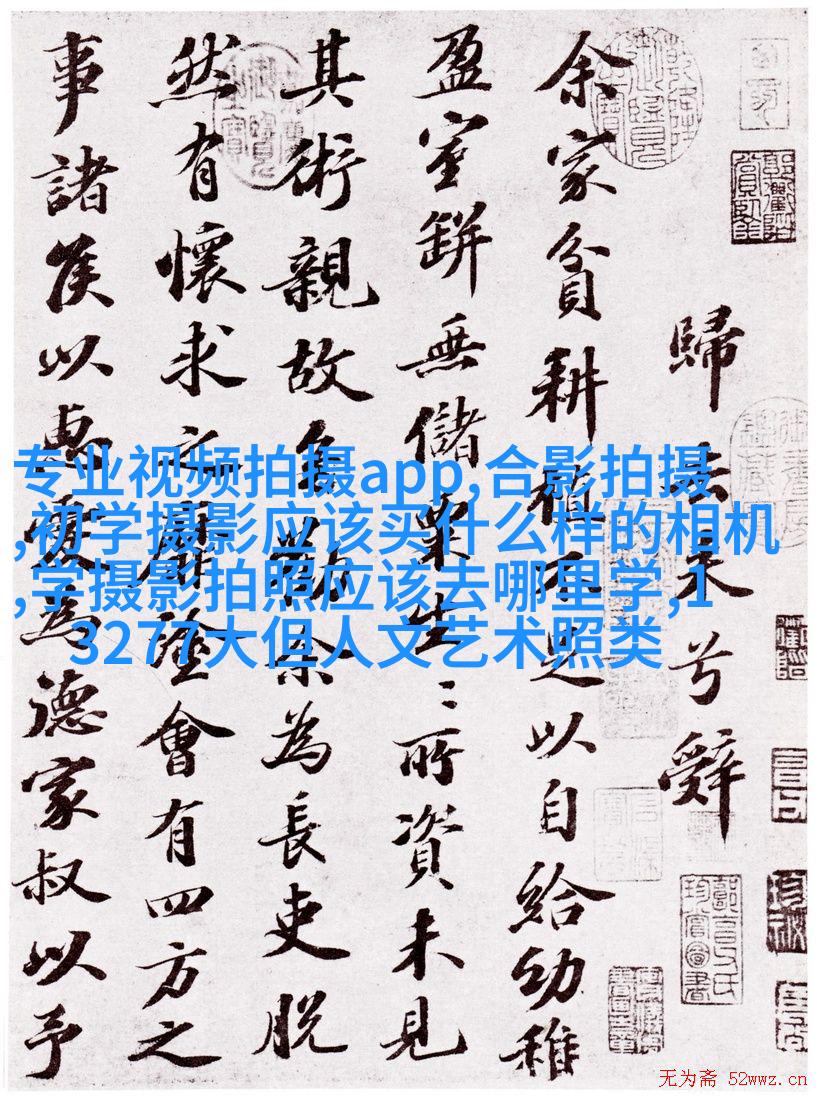 歸去来兮辭
余家貧耕植不足以自給幼稚
盈室缾無儲粟生〻所資未見
其術親故多勸余為長吏脱
然有懷求之靡塗會有四方之
事諸侯以惠愛為德家叔以予
专业视频拍摄app,合影拍摄
,初学摄影应该买什么样的相机
,学摄影拍照应该去哪里学,1
3277大但人文艺术照类
无为斋 52wwz.cn